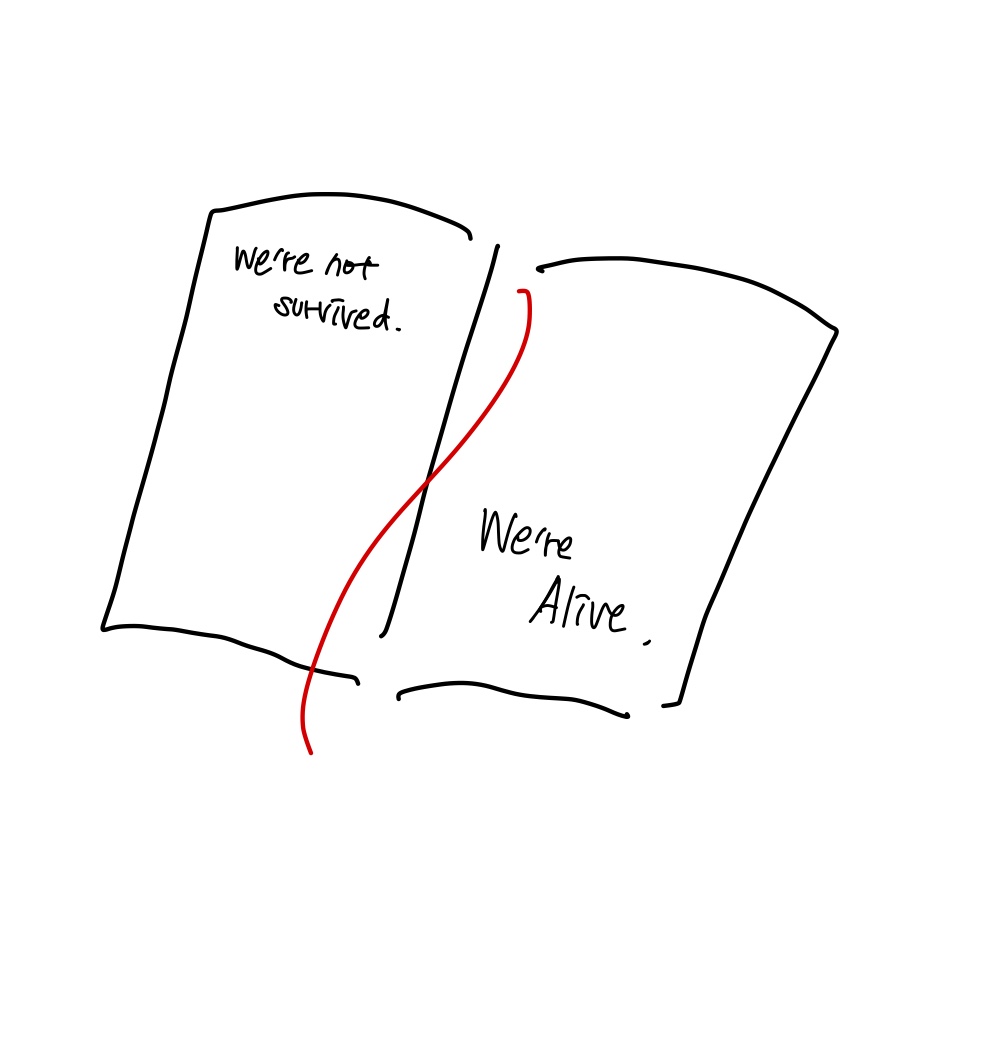 we're not
survived.
We're
Alive.